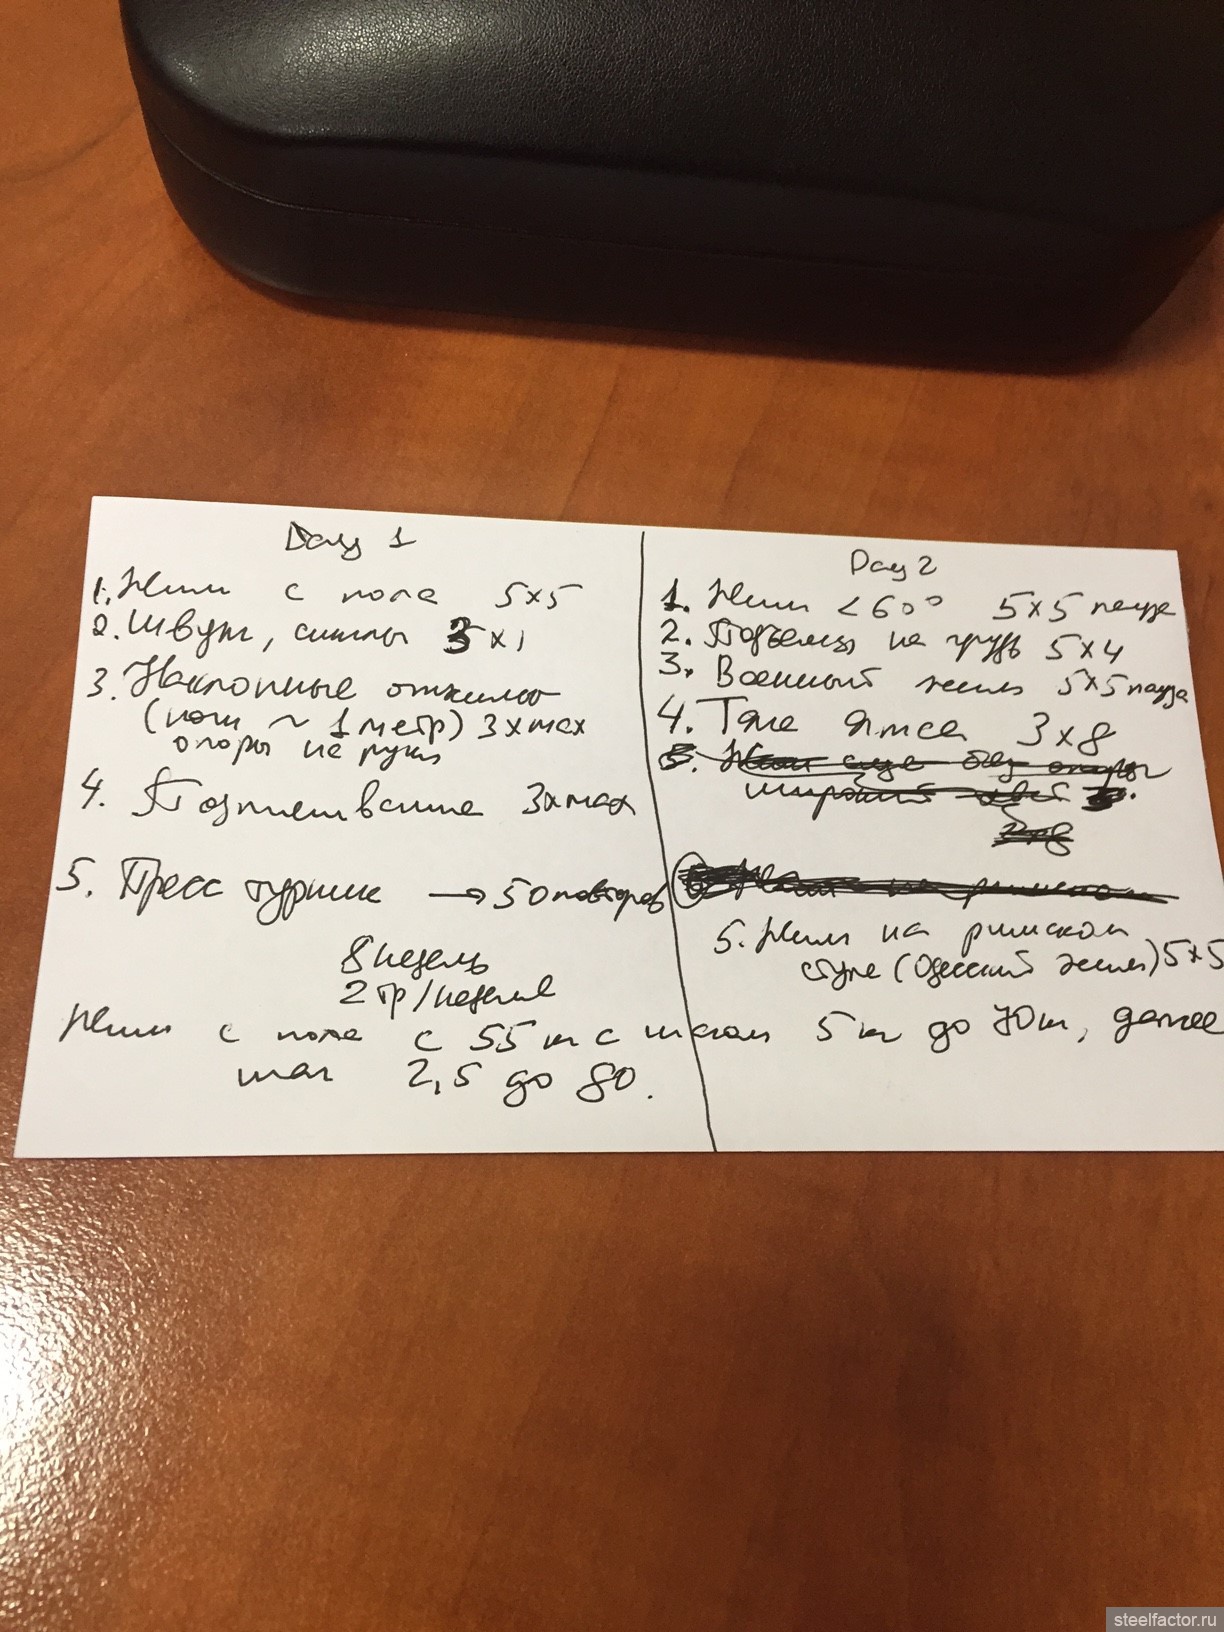 Day 1
1. Жим с пола 5x5
2. Швунг, синглы x1
3. Наклонные отжимы
(ноги ~ 1 метр) 3xmax
опоры на руки
4. Подтягивание 3xmax
5. Пресс турник → 50 повторов
8 недель
2 тр/неделе
Жим с пола с 55 кг с шагом 5 кг до 70 кг, далее
шаг 2,5 до 80.
Day 2
1. Жим <60° 5x5 пауза
2. Подъемы на грудь 5x4
3. Военный жим 5x5 пауза
4. Тяга Ятса 3x8
5. Жим на римском
стуле (Одесский жим) 5x5
steelfactor.ru